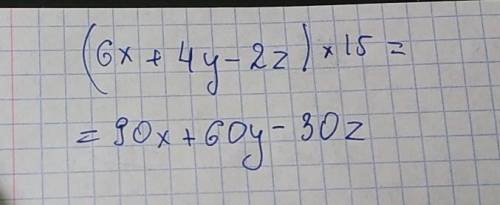 (6x + 4y - 2z) × 15 =
= 90x + 60y - 30z